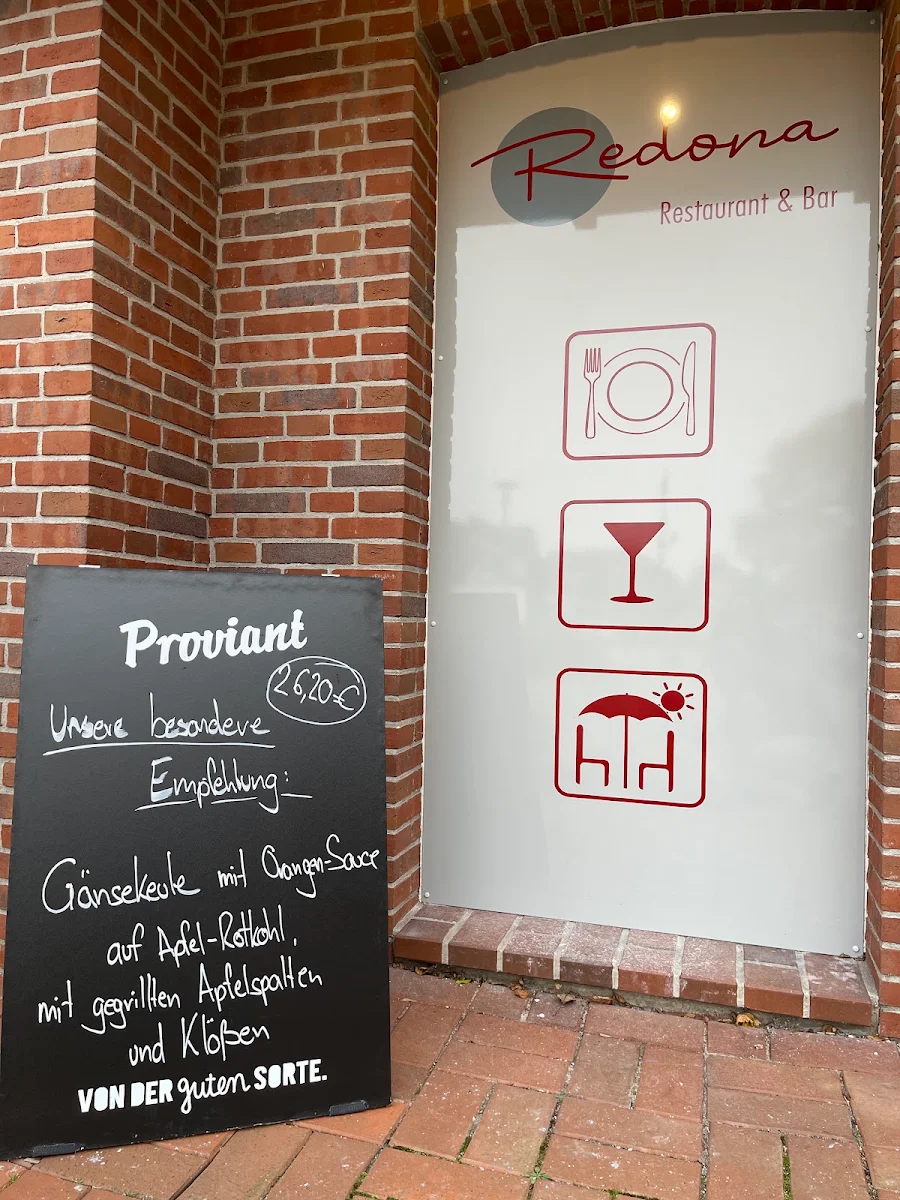 Redona
Restaurant & Bar
Proviant
26,20 €
Unsere besondere
Empfehlung:
Gänsekeule mit Orangen-Sauce
auf Apfel-Rotkohl,
mit gegrillten Apfelspalten
und Klößen
VON DER guten SORTE.